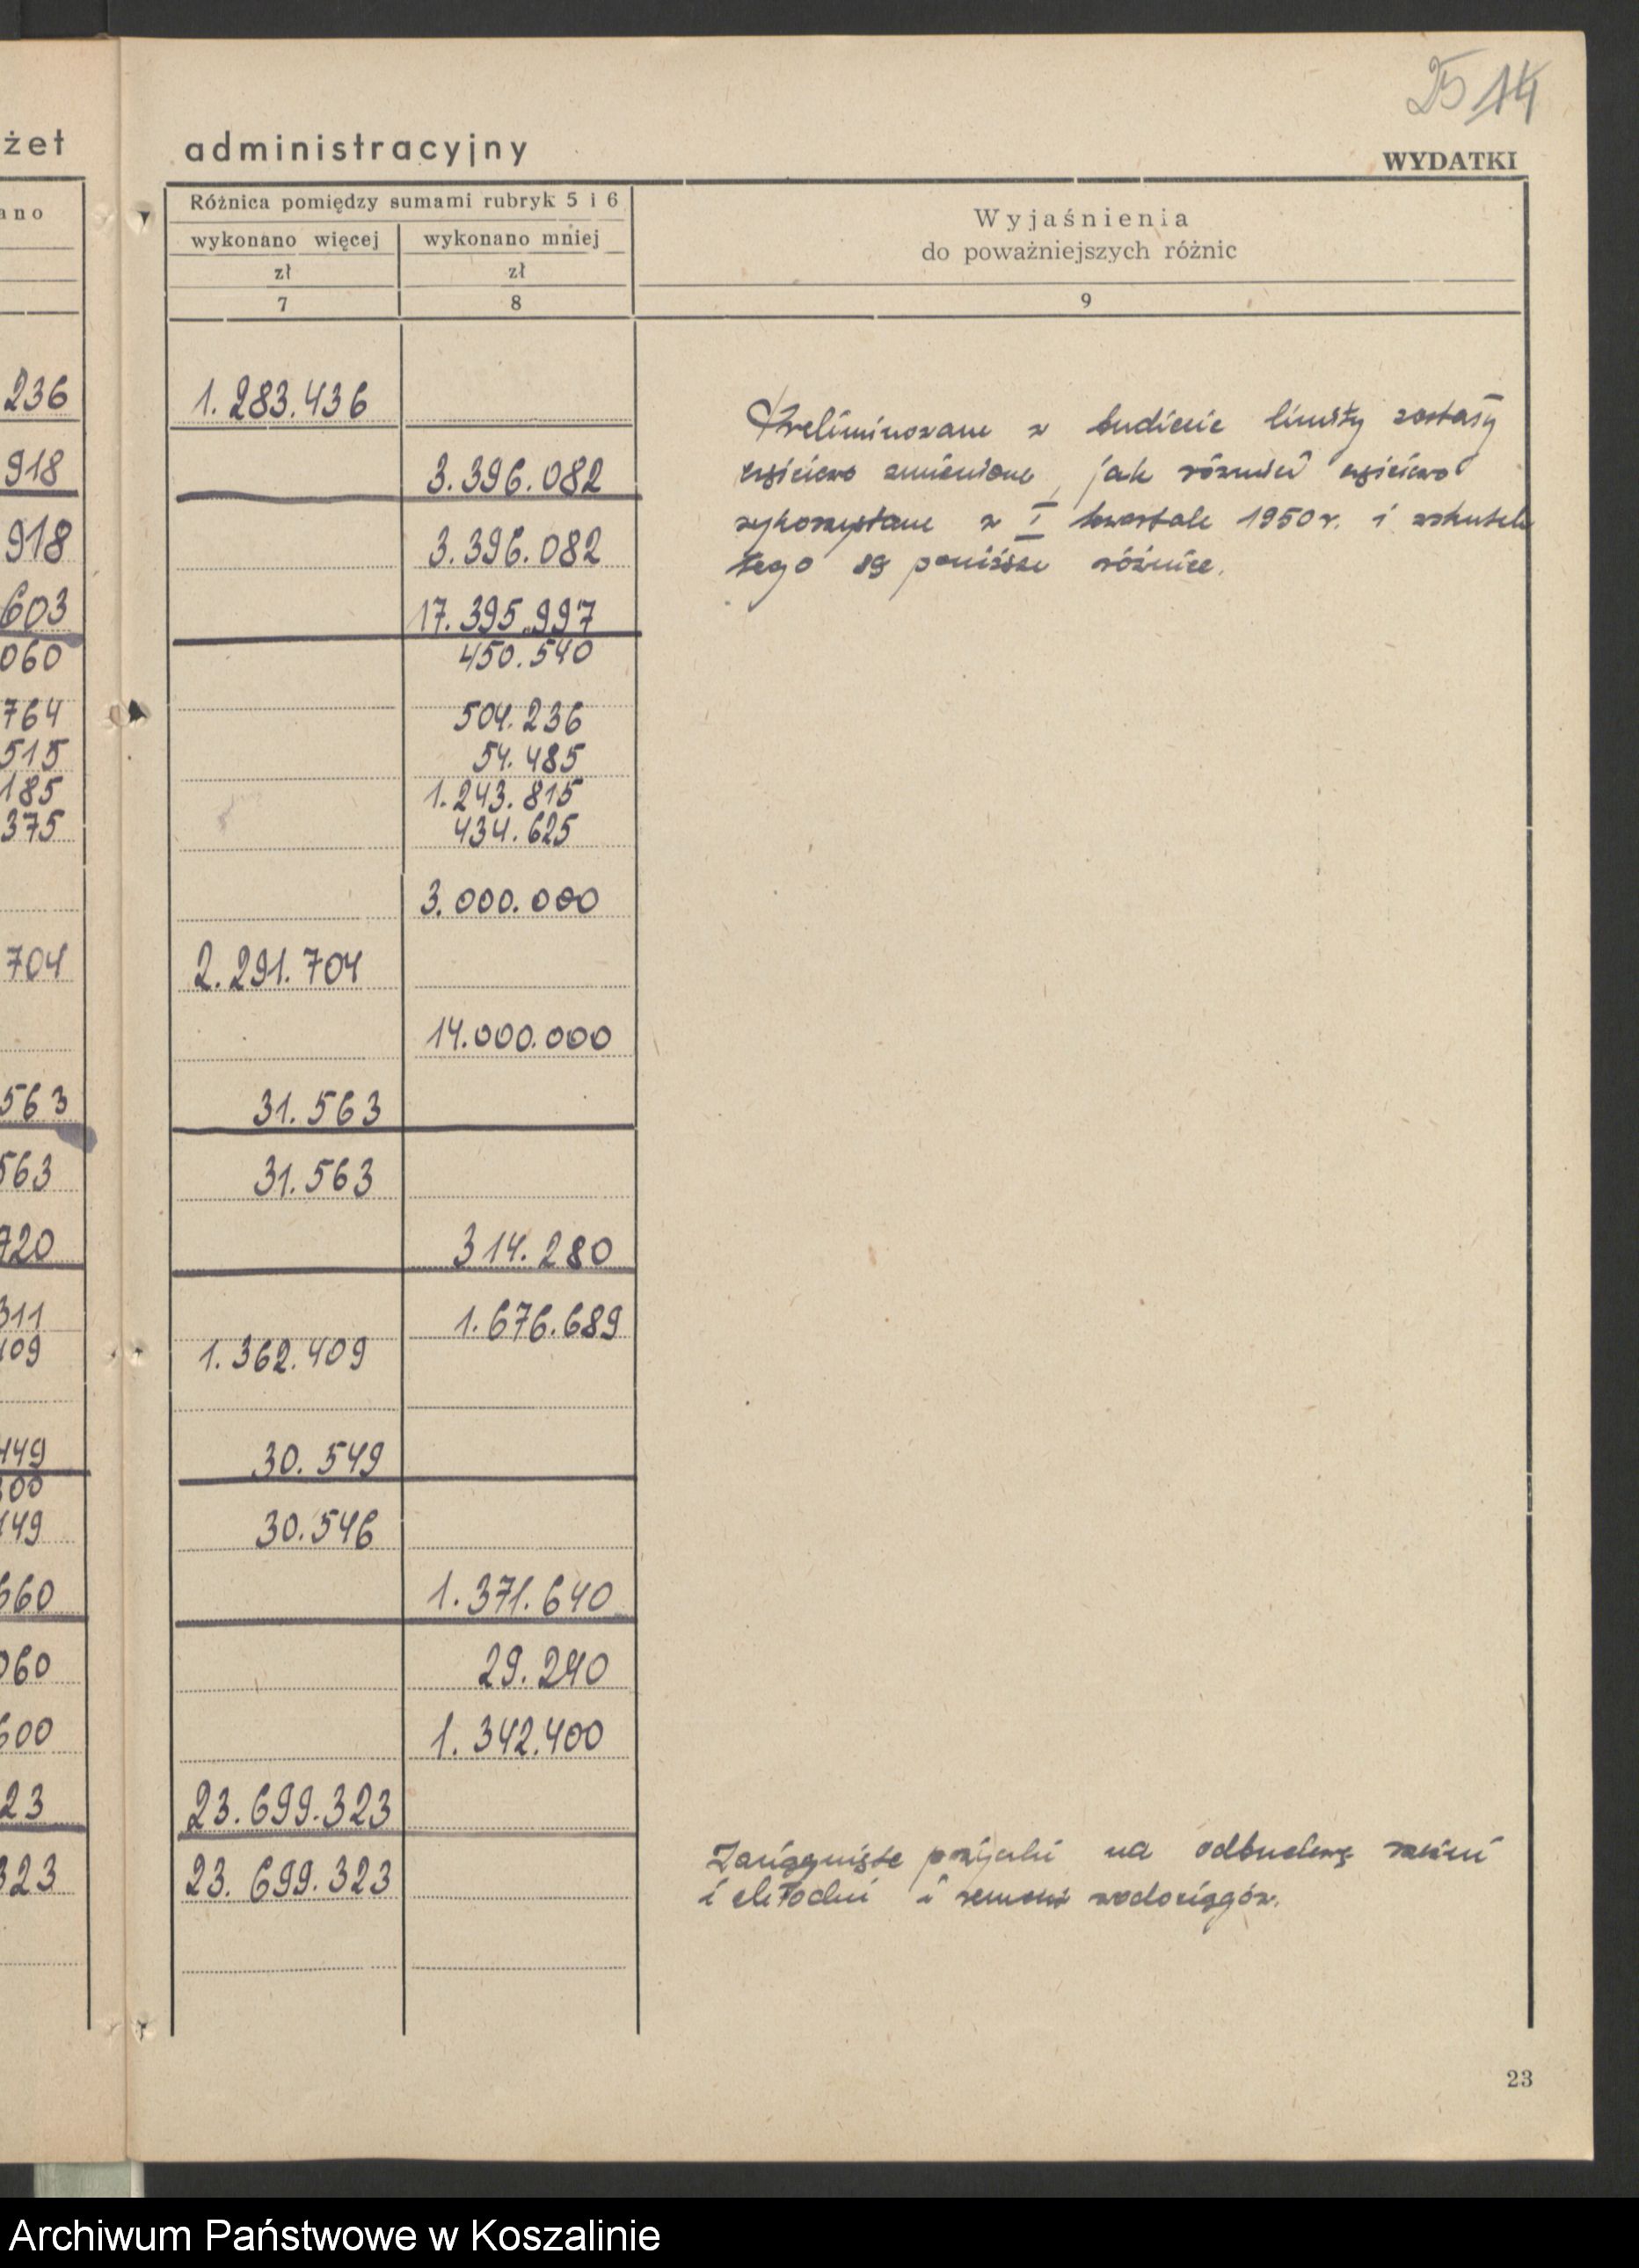 25 14
żet administracyjny
WYDATKI
ano
Różnica pomiędzy sumami rubryk 5 i 6
Wyjaśnienia
do poważniejszych różnic
wykonano więcej wykonano mniej
zł zł
7 8 9
236 1.283.436
Preliminowane w budżecie limity zostały
918 3.396.082
częściowo zmienione, jak również częściowo
wykorzystane w I kwartale 1950 r. i wskutek
918 3.396.082
tego są poniższe różnice.
603 17.395.997
060 450.540
764 504.236
515 54.485
185 1.243.815
375 434.625
3.000.000
704 2.291.704
14.000.000
563 31.563
563 31.563
720 314.280
311 1.676.689
409 1.362.409
449 30.549
300
149 30.546
660 1.371.640
060 29.240
600 1.342.400
23 23.699.323
Zaciągnięte pożyczki na odbudowę
323 23.699.323
i i remont wodociągów.
23
Archiwum Państwowe w Koszalinie